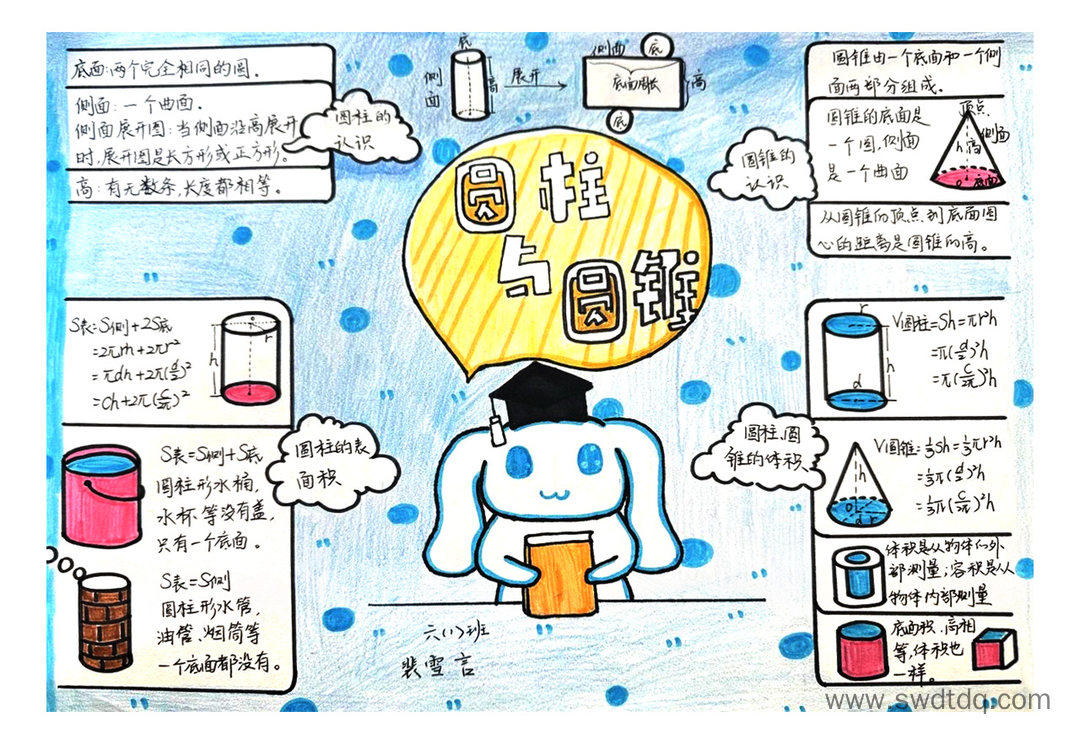 底面:两个完全相同的圆。
侧面:一个曲面。
侧面展开图:当侧面沿高展开
时,展开图是长方形或正方形。
高:有无数条,长度都相等。
圆柱的
认识
底
侧面
高
展开
侧面
底
底面周长
高
底
圆柱
与圆锥
圆锥的
认识
圆锥由一个底面和一个侧
面两部分组成。
圆锥的底面是
一个圆,侧面
是一个曲面
顶点
侧面
h高
底面
从圆锥的顶点到底面圆
心的距离是圆锥的高。
S表=S侧+2S底
=2πrh+2πr²
=πdh+2π(d/2)²
=Ch+2π(C/2π)²
h
r
圆柱的表
面积
S表=S侧+S底
圆柱形水桶,
水杯等没有盖,
只有一个底面。
S表=S侧
圆柱形水管,
油管、烟筒等
一个底面都没有。
六(1)班
裴雪言
圆柱、圆
锥的体积
r
d
h
V圆柱=Sh=πr²h
=π(d/2)²h
=π(C/2π)²h
h
d r
V圆锥=1/3Sh=1/3πr²h
=1/3π(d/2)²h
=1/3π(C/2π)²h
体积是从物体的外
部测量;容积是从
物体内部测量
底面积、高相
等,体积也
一样。
www.swdtdq.com